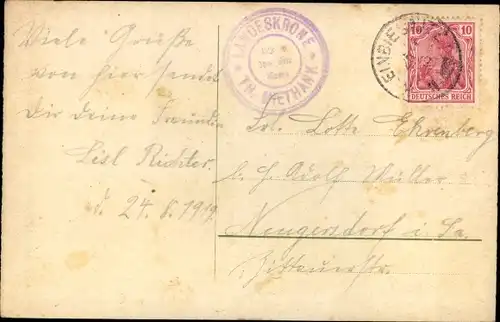 Viele Grüße
von hier sendet
Dir deine Freundin
Lisl Richter.
d. 24. 8. 1919
LANDESKRONE
TH. MIETHANK
10 10
DEUTSCHES REICH
Frl. Lotte Ehrenberg
b. H. Adolf Müller
Neugersdorf i. Sa.
Zittauerstr.